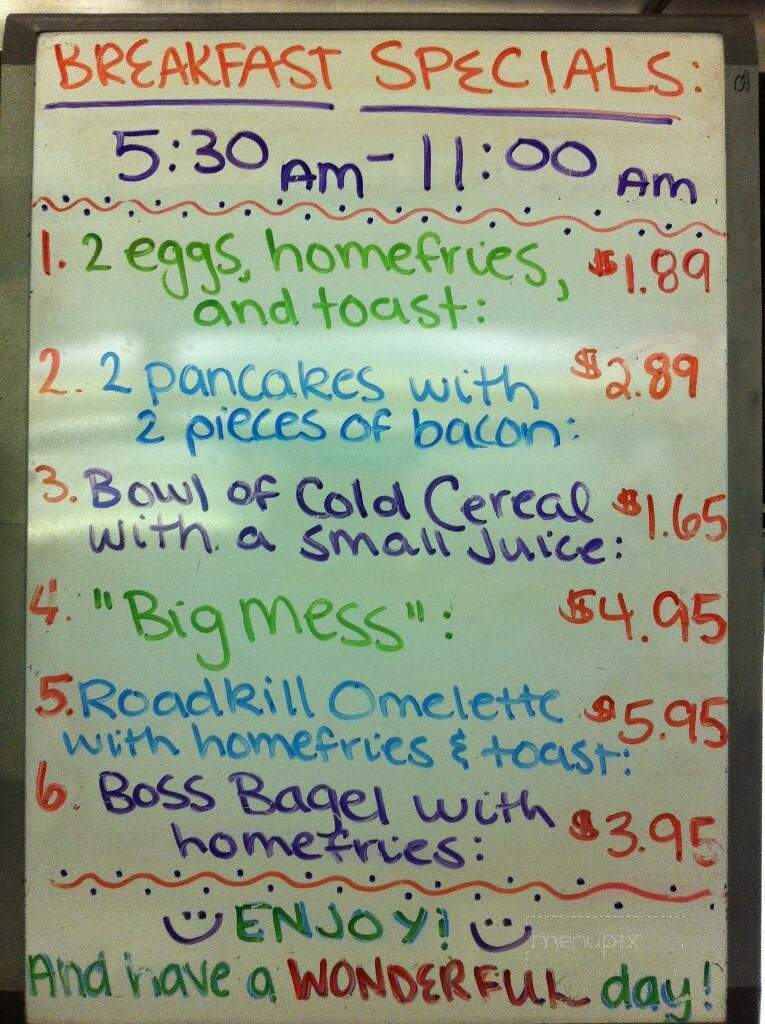 BREAKFAST SPECIALS:
5:30 AM - 11:00 AM
1. 2 eggs, homefries, $1.89
and toast:
2. 2 pancakes with $2.89
2 pieces of bacon:
3. Bowl of Cold Cereal $1.65
with a small Juice:
4. "Big Mess": $4.95
5. Roadkill Omelette $5.95
with homefries & toast:
6. Boss Bagel with $3.95
homefries:
ENJOY!
menupix
And have a WONDERFUL day!